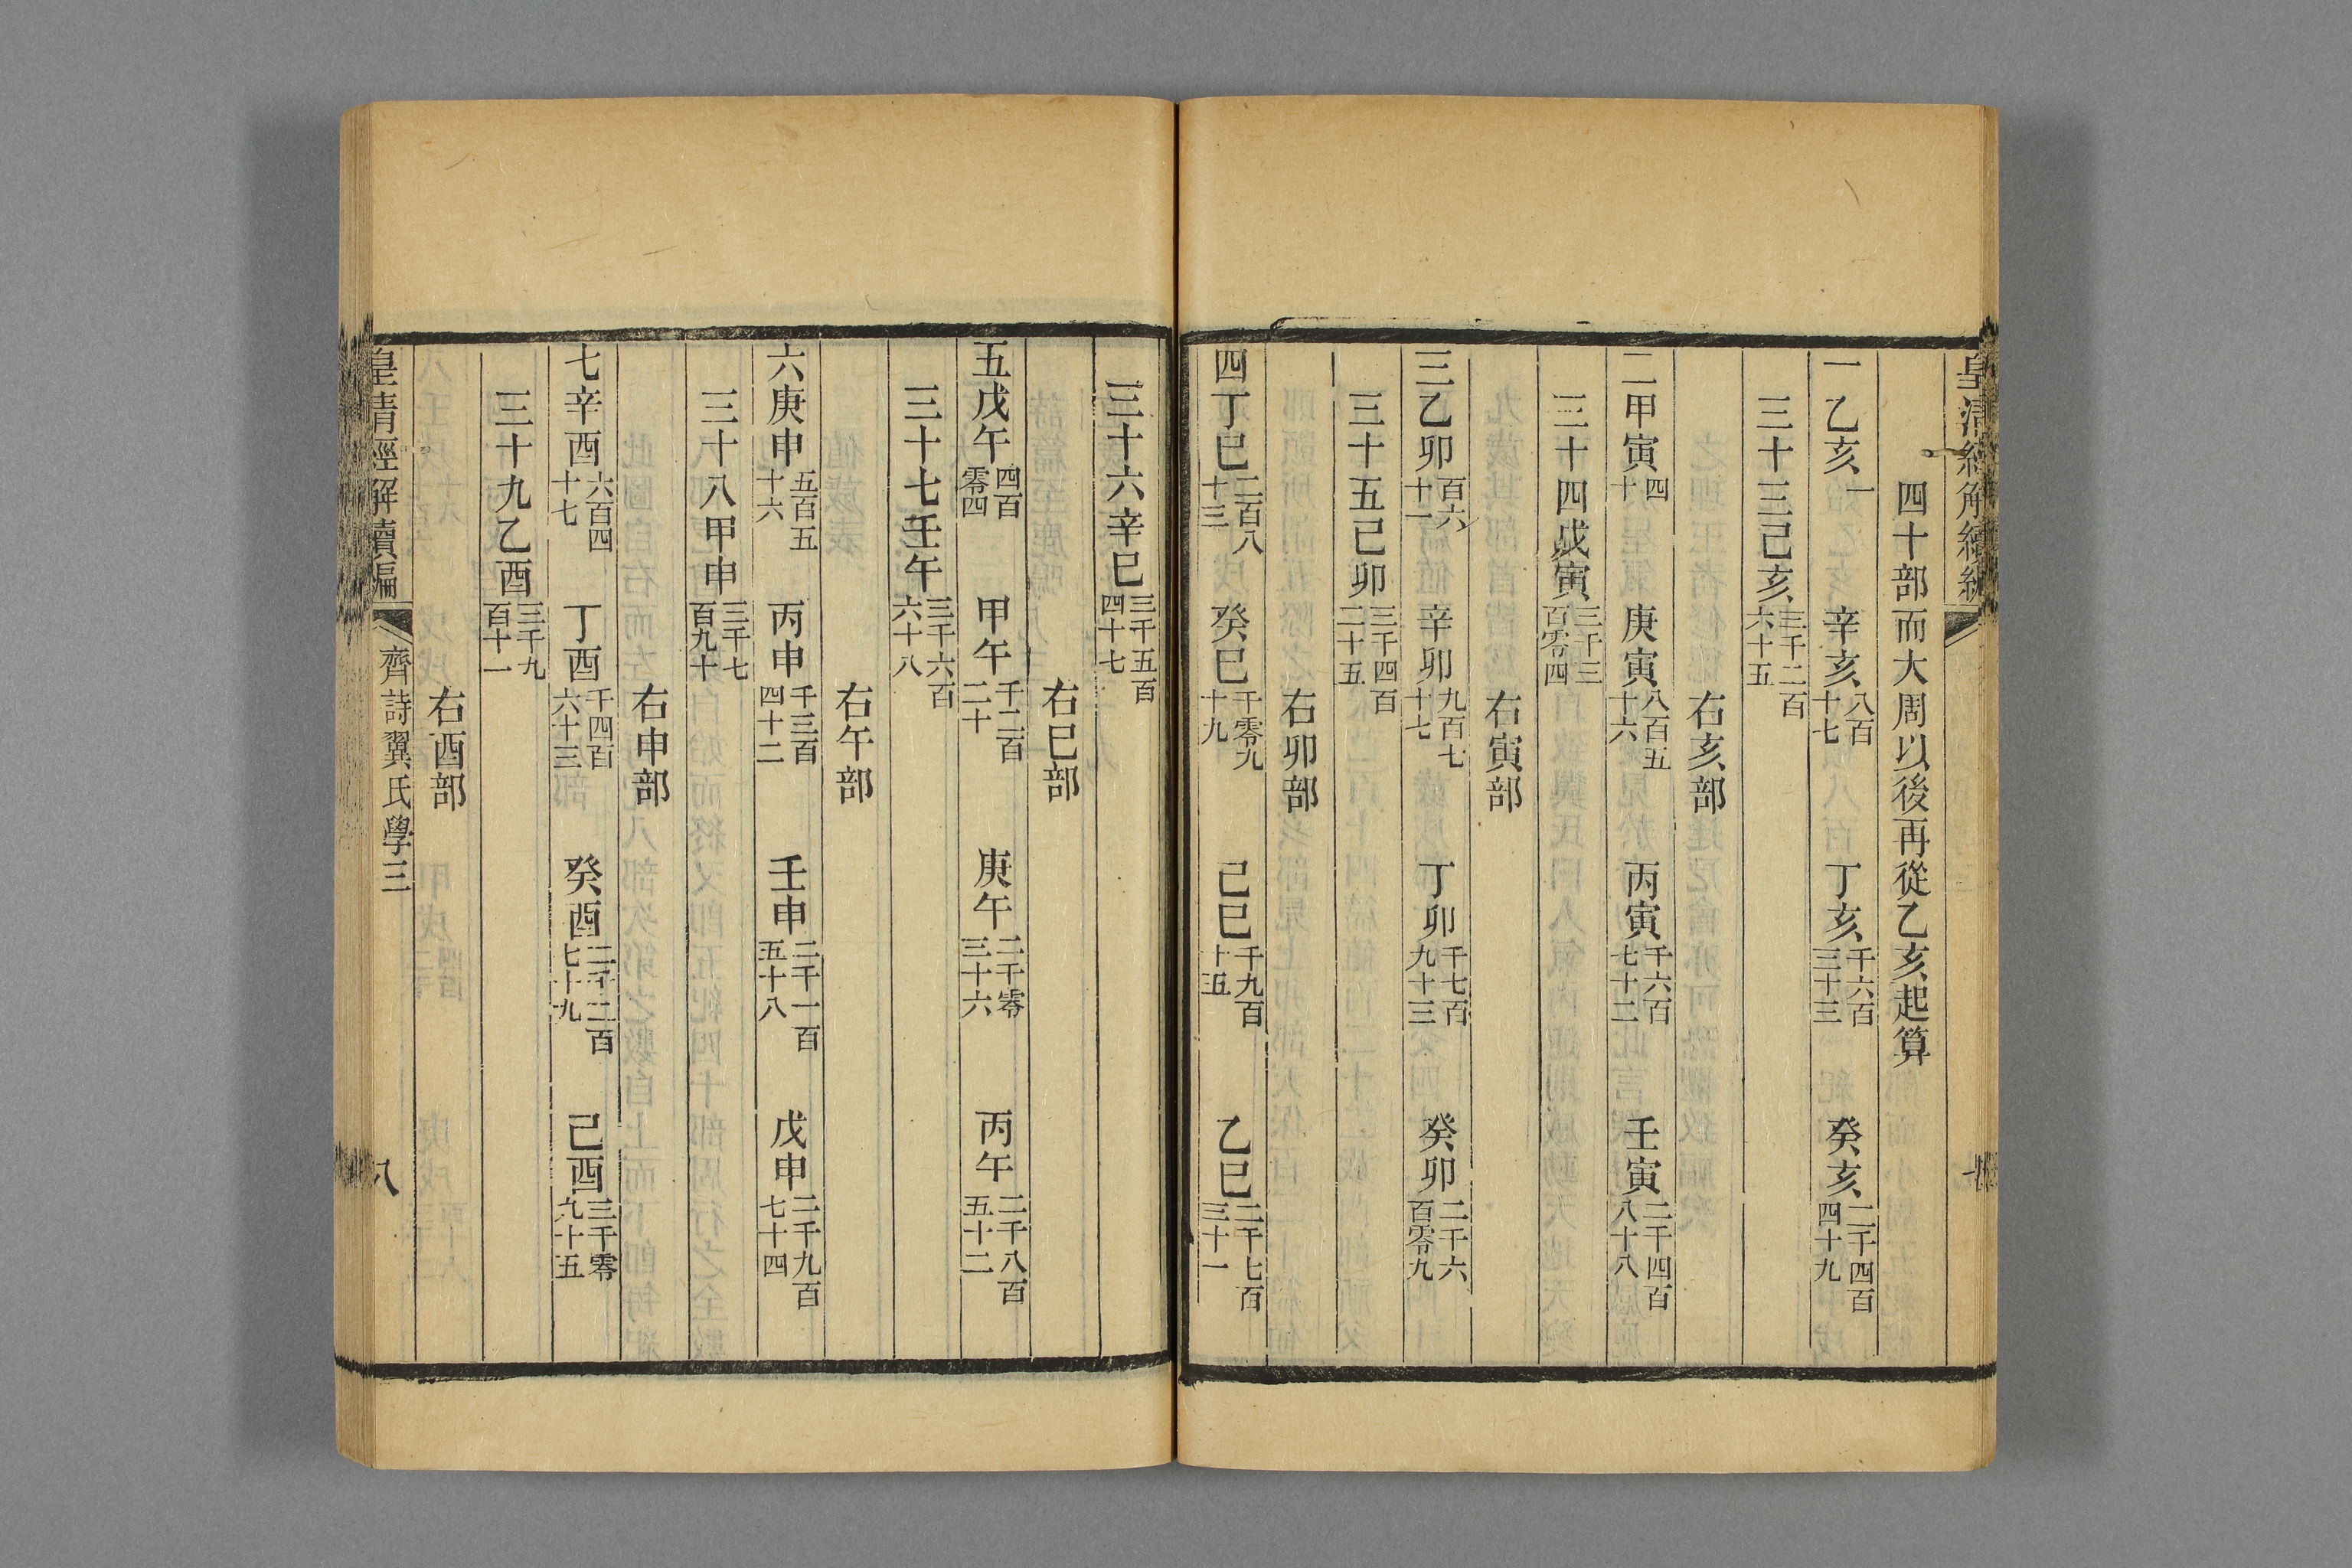 皇清經解續編
四十部而大周以後再從乙亥起算
一乙亥一 辛亥八百十七 丁亥千六百三十三 癸亥二千四百四十九
三十三己亥三千二百六十五
右亥部
二甲寅四十 庚寅八百五十六 丙寅千六百七十二 壬寅二千四百八十八
三十四戊寅三千三百零四
右寅部
三乙卯百六十一 辛卯九百七十七 丁卯千七百九十三 癸卯二千六百零九
三十五己卯三千四百二十五
右卯部
四丁巳二百八十三 癸巳千零九十九 己巳千九百十五 乙巳二千七百三十一
三十六辛巳三千五百四十七
右巳部
五戊午四百零四 甲午千二百二十 庚午二千零三十六 丙午二千八百五十二
三十七壬午三千六百六十八
右午部
六庚申五百五十六 丙申千三百四十二 壬申二千一百五十八 戊申二千九百七十四
三十八甲申三千七百九十
右申部
七辛酉六百四十七 丁酉千四百六十三 癸酉二千二百七十九 己酉三千零九十五
三十九乙酉三千九百十一
右酉部
皇清經解續編 齊詩翼氏學三 八